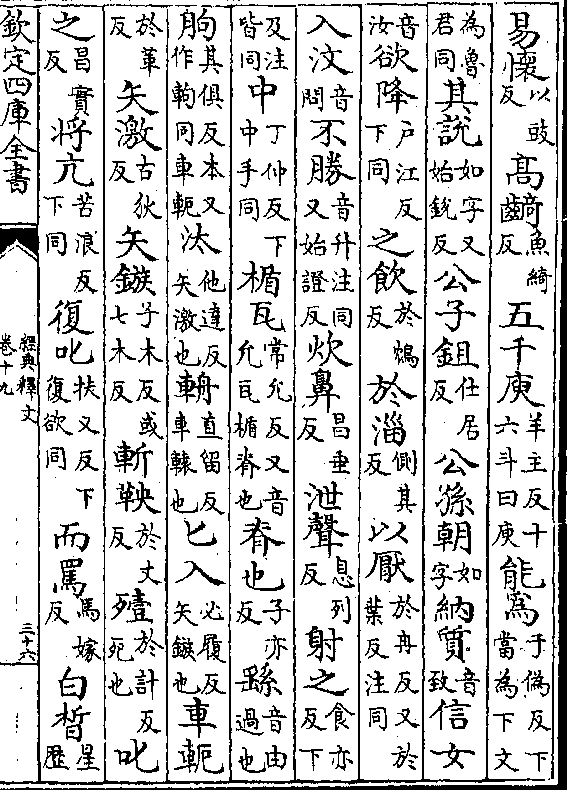 易懷以豉反高齮魚綺反五千庾羊主反十六斗曰庾能爲于偽反下當為下文
為魯君同其說如字又始銳反公子鉏仕居反公孫朝如字納質音致信女
音汝欲降戶江反下同之飲於鴆反於淄側其反以厭於冉反又於葉反注同
入汶音問不勝音升注同又始證反炊鼻昌垂反泄聲息列反射之食亦反下
及注皆同中丁仲反下中手同楯瓦常允反又音允瓦楯脊也脊也子亦反繇音由過也
朐其俱反本又作軥同車軛汰他達反矢激也輈直留反車轅也匕入必履反矢鏃也車軛
於革反矢激古狄反矢鏃子木反或七木反斬鞅於丈反殪於計反死也叱
之昌實反将亢苦浪反下同復叱扶又反下復欲同而罵馬嫁反白皙星歷
欽定四庫全書
經典釋文
卷十九
三十六